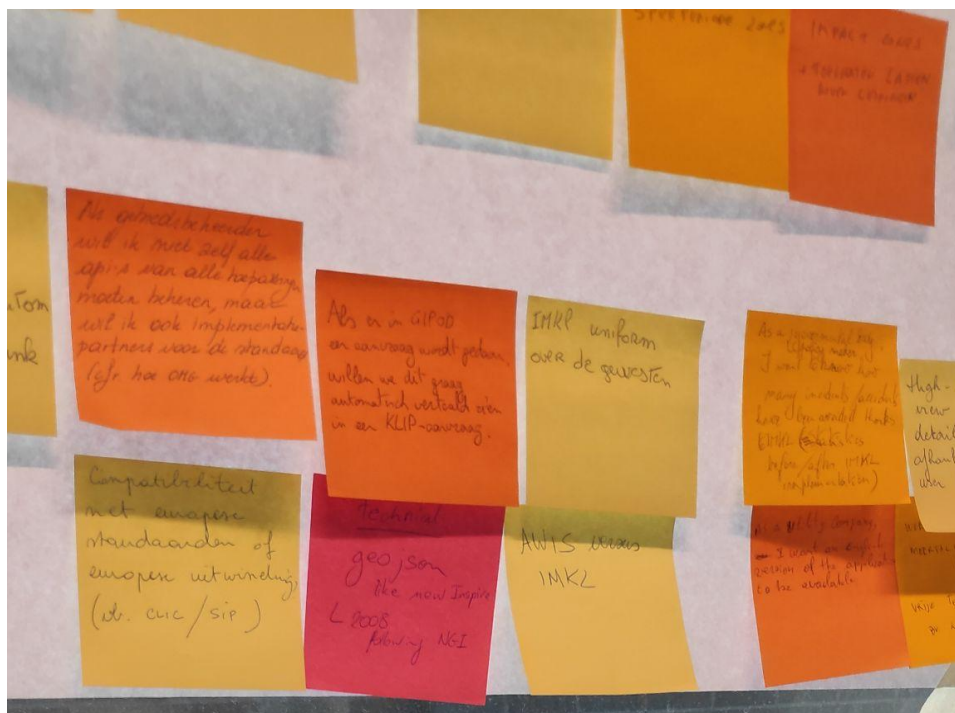 IMPACT
Als gebiedsbeheerder
wil ik niet zelf alle
api's van alle toepassingen
moeten beheren, maar
wil ik ook implementatie-
partners voor de standaard
(cfr hoe OMG werkt).
Als er in GIPOD
en aanvraag wordt gedaan,
willen we dit graag
automatisch vertaald zien
in een KLIP-aanvraag.
IMKL uniform
over de gewesten
As a
I want to know how
many incidents/accidents
have been avoided thanks
before/after IMKL
implementation)
High-
view
detail
Compatibiliteit
met europese
standaarden of
europese uitwisseling,
(vb. CLIC / SIP)
Technical
geojson
like now Inspire
L 2008
following NGI
AWIS versus
IMKL
As a utility company,
I want an english
version of the application
to be available